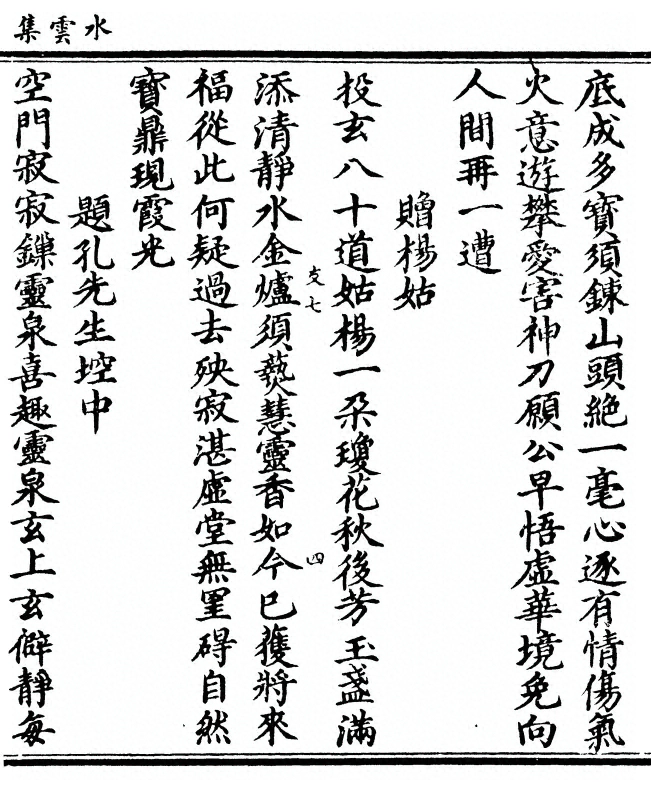 水雲集
底成多寶須鍊山頭絕一毫心逐有情傷氣
火意遊攀愛害神刀願公早悟虛華境免向
人間再一遭
贈楊姑
投玄八十道姑楊一朶瓊花秋後芳玉盞滿
支七
四
添清靜水金爐須爇慧靈香如今已獲將來
福從此何疑過去殃寂湛虛堂無罣碍自然
寶鼎現霞光
題孔先生埪中
空門寂寂鑠靈泉喜趣靈泉玄上玄僻靜每